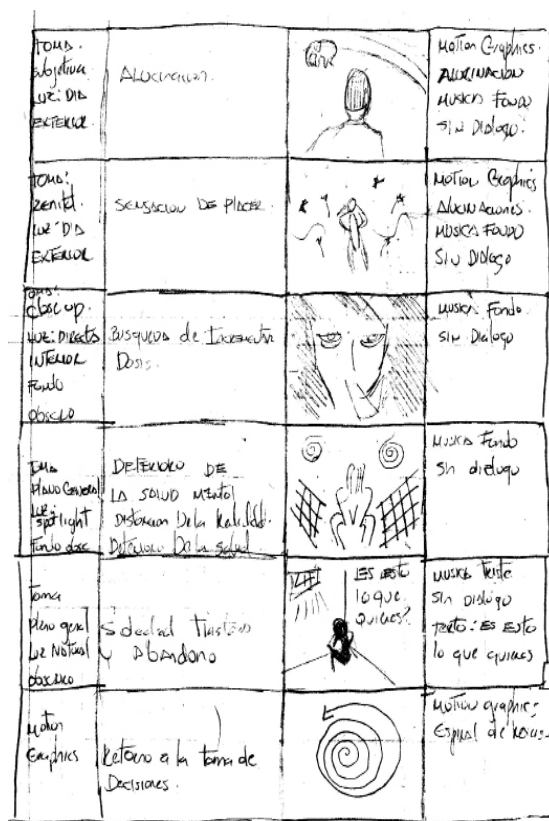 TOMA.
subjetiva
LUZ: DIA
EXTERIOR.
ALUCINACION.
Motion Graphics
ALUCINACION
MUSICA FONDO
SIN DIALOGO.
TOMA:
zenital.
LUZ: DIA
EXTERIOR
SENSACION DE PLACER.
MOTION Graphics
ALUCINACIONES.
MUSICA FONDO
SIN DIALOGO
close up.
LUZ: DIRECTA
INTERIOR
Fondo
obscuro
BUSQUEDA de Incrementar
Dosis.
MUSICA Fondo
SIN DIALOGO
TOMA
PLANO General
LUZ:
spotlight
Fondo
DETERIORO DE
LA SALUD MENTAL
Distorcion De la Realidad.
Deterioro De la salud
MUSICA Fondo
Sin dialogo
Toma
Plano geral
Luz Natural
obscuro
Soledad Tristeza
y Abandono
ES esto
lo que
quieres?
MUSICA Triste
Sin Dialogo
TEXTO: ES ESTO
lo que quieres
Motion
Graphics
Retorno a la toma de
Decisiones.
Motion graphics
Espiral de